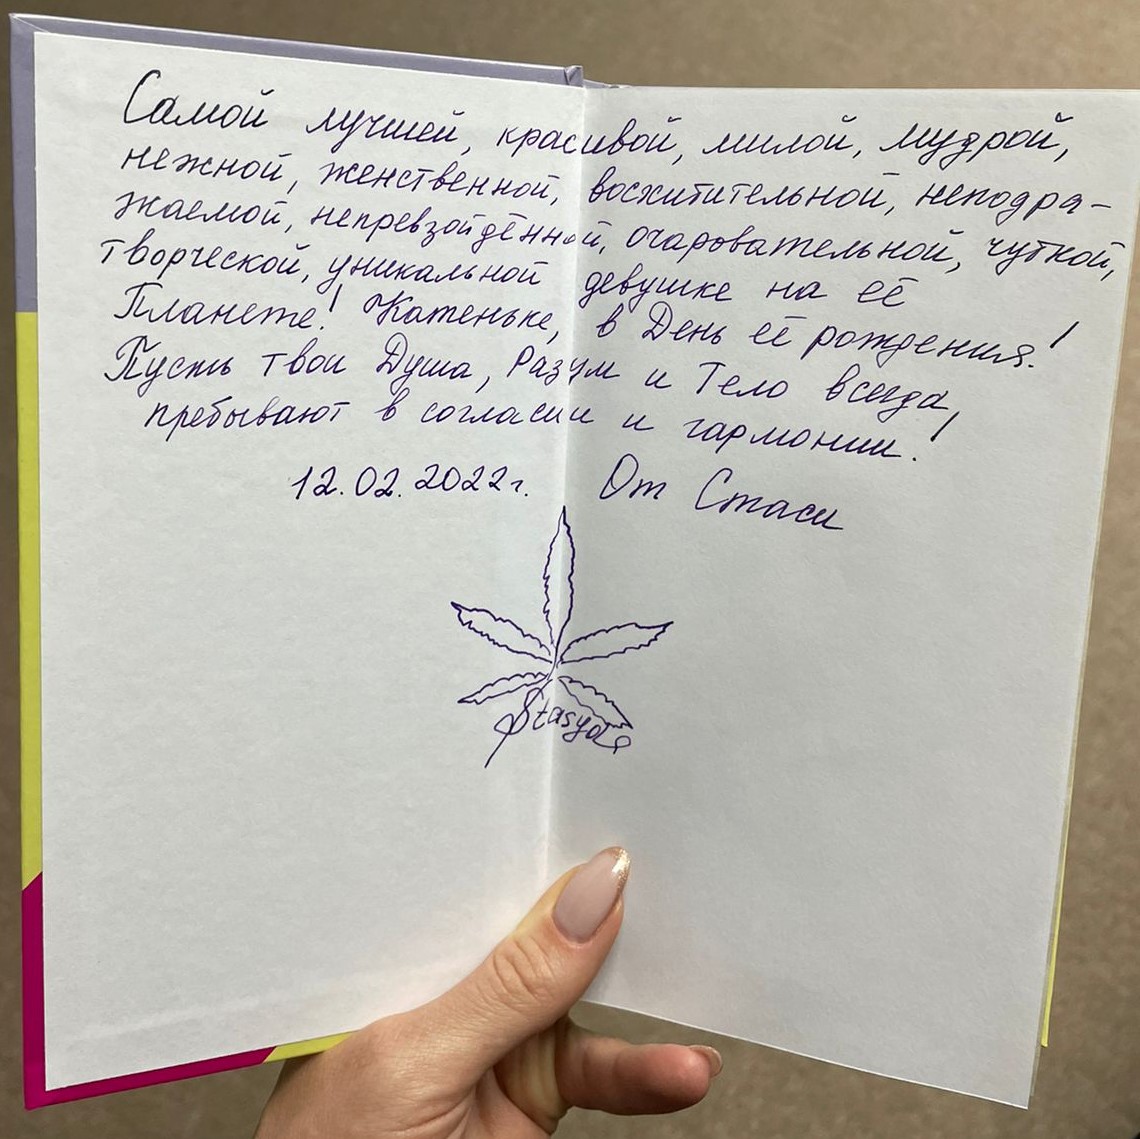 Самой лучшей, красивой, милой, мудрой,
нежной, женственной, восхитительной, неподра-
жаемой, непревзойдённой, очаровательной, чуткой,
творческой, уникальной девушке на её
Планете! Катеньке, в День её рождения!
Пусть твои Душа, Разум и Тело всегда
пребывают в согласии и гармонии!
12.02.2022г. От Стаси
Stasya